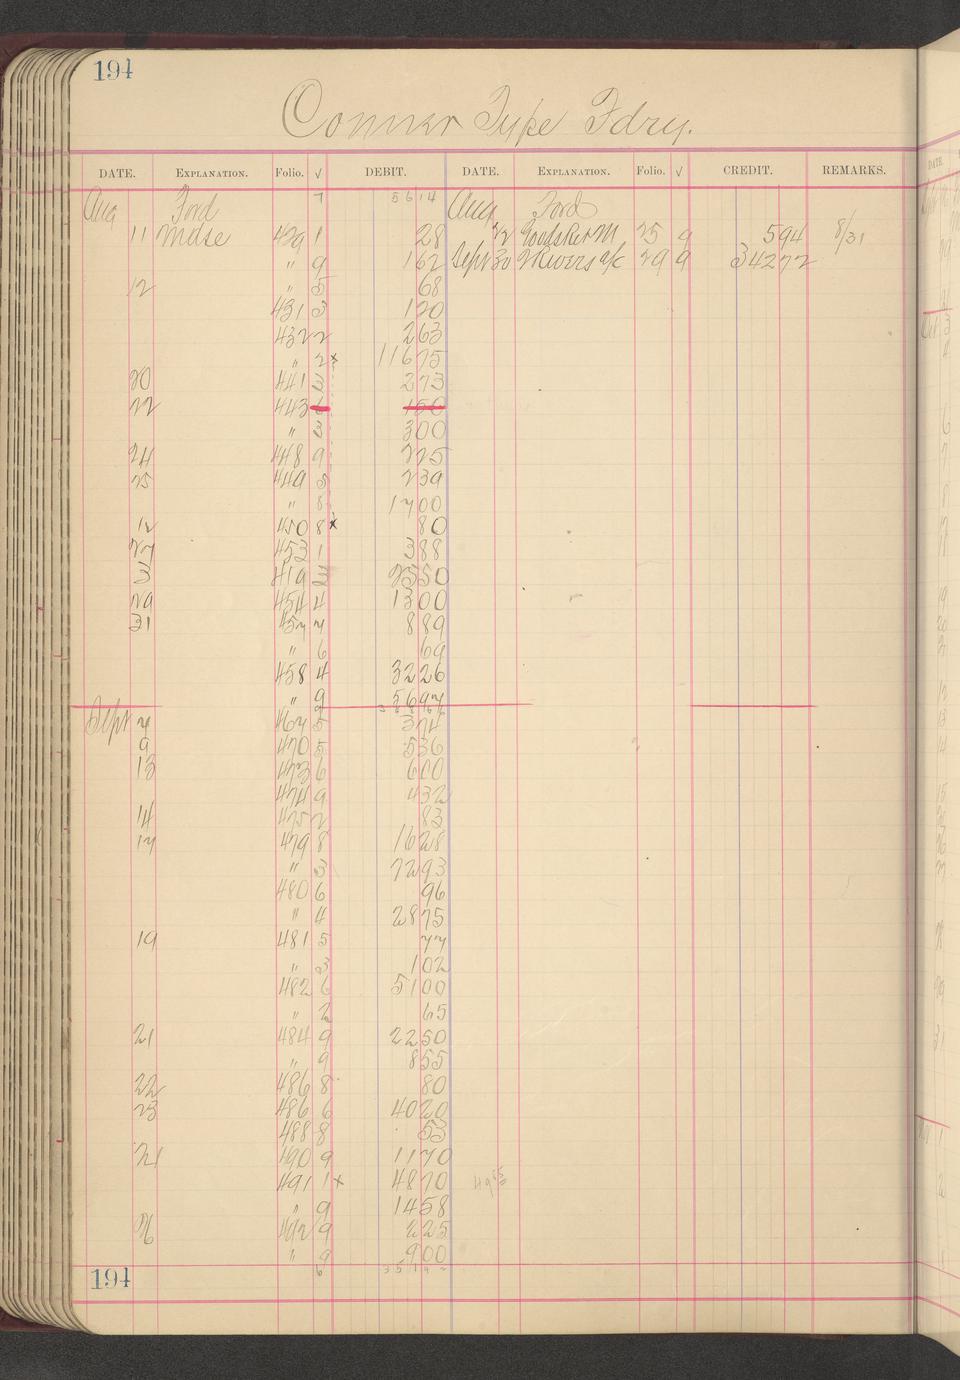 194
Conner Type Fdry.
DATE. EXPLANATION. Folio. √ DEBIT. DATE. EXPLANATION. Folio. √ CREDIT. REMARKS.
Aug Ford 7 5614 Aug Ford
11 Mdse 429 1 28 22 Goods Ret M 25 9 594 8/31
" 9 162 Sept 30 a/c 29 9 34272
12 " 5 68
431 3 120
432 2 263
" 2 x 11675
20 441 3 273
22 443 150
" 3 300
24 448 9 225
25 449 5 239
" 8 1700
12 450 8 x 80
27 453 1 388
3 419 2550
29 454 4 1300
31 457 7 889
" 6 69
458 4 3226
" 9 5697
Sept 7 467 5 374
9 470 5 536
13 473 6 600
474 9 432
14 475 2 83
17 479 8 1628
" 3 7293
480 6 96
" 4 2875
19 481 5 77
" 3 102
482 6 5100
" 2 65
21 484 9 2250
" 9 855
22 486 8 80
23 486 6 4020
488 8 53
24 490 9 1170
491 1 x 4870
" 9 1458
26 492 9 225
" 9 900
6
194